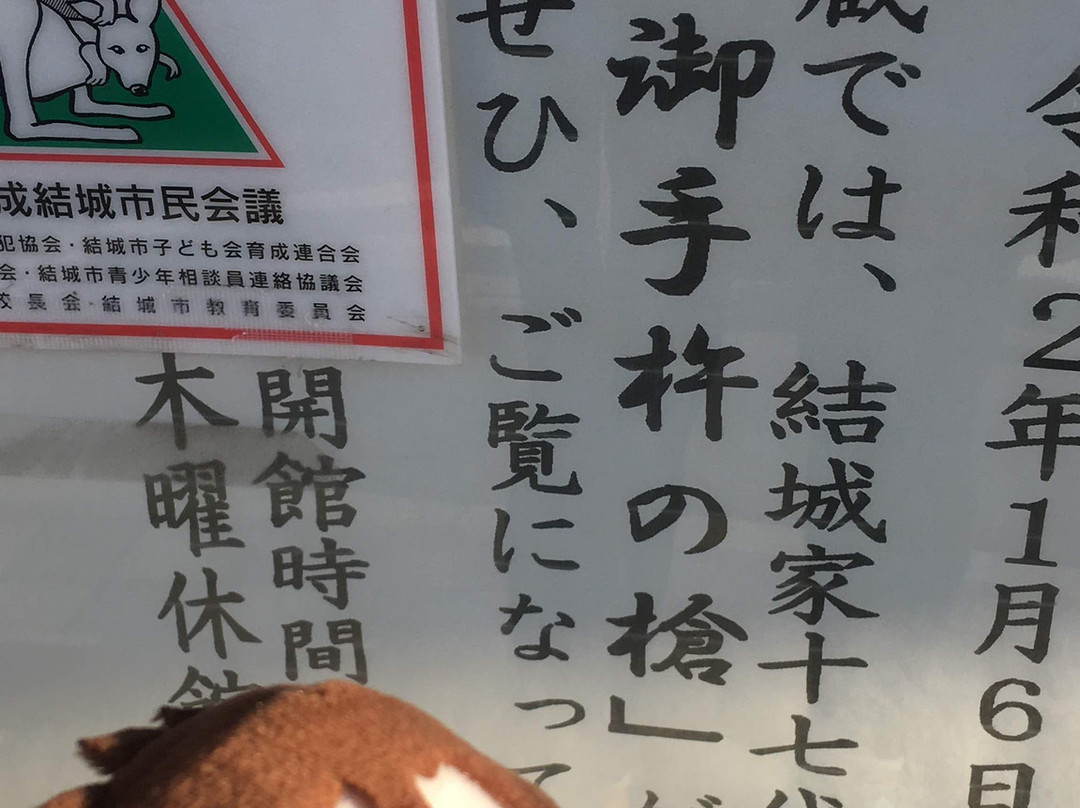 令和2年1月6日
蔵では、結城家十七代
御手杵の槍」が
ぜひ、ご覧になって
開館時間
木曜休館
成結城市民会議
犯協会・結城市子ども会育成連合会
会・結城市青少年相談員連絡協議会
校長会・結城市教育委員会